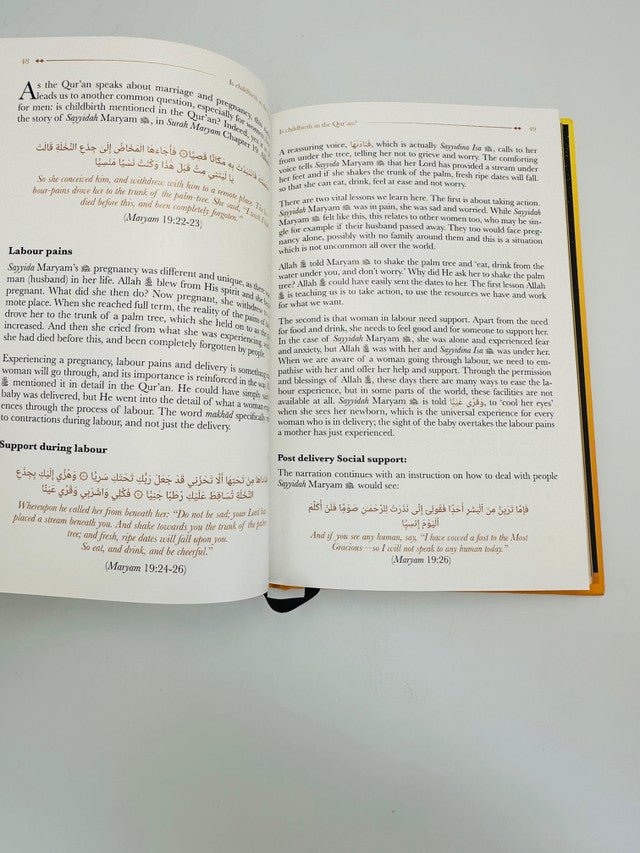 48
Is childbirth in
As the Qur'an speaks about marriage and pregnancy, this
leads us to another common question, especially for women
for men: is childbirth mentioned in the Qur'an? Indeed, yes
the story of Sayyidah Maryam, in Surah Maryam Chapter 19.
مَكَانًا قَصِيًّا ۞ فَأَجَاءَهَا الْمَخَاضُ إِلَى جِذْعِ النَّخْلَةِ قَالَتْ
يَا لَيْتَنِي مِتُّ قَبْلَ هَذَا وَكُنْتُ نَسْيًا مَنْسِيًّا
So she conceived him, and withdrew with him to a remote place. The
bour-pains drove her to the trunk of the palm-tree. She said, "I wish I
died before this, and been completely forgotten."
(Maryam 19:22-23)
Labour pains
Sayyida Maryam's pregnancy was different and unique, as there
man (husband) in her life. Allah blew from His spirit and she
pregnant. What did she then do? Now pregnant, she withdrew
mote place. When she reached full term, the reality of the pains of
drove her to the trunk of a palm tree, which she held on to as the
increased. And then she cried from what she was experiencing,
she had died before this, and been completely forgotten by people.
Experiencing a pregnancy, labour pains and delivery is something
woman will go through, and its importance is reinforced in the way
mentioned it in detail in the Qur'an. He could have simply said
baby was delivered, but He went into the detail of what a woman
ences through the process of labour. The word makhād specifically
to contractions during labour, and not just the delivery.
Support during labour
مِنْ تَحْتِهَا أَلَّا تَحْزَنِي قَدْ جَعَلَ رَبُّكِ تَحْتَكِ سَرِيًّا ۞ وَهُزِّي إِلَيْكِ بِجِذْعِ
النَّخْلَةِ تُسَاقِطْ عَلَيْكِ رُطَبًا جَنِيًّا ۞ فَكُلِي وَاشْرَبِي وَقَرِّي عَيْنًا
Whereupon he called her from beneath her: "Do not be sad; your Lord has
placed a stream beneath you. And shake towards you the trunk of the palm
tree; and fresh, ripe dates will fall upon you.
So eat, and drink, and be cheerful."
(Maryam 19:24-26)
Is childbirth in the Qur'an?
49
A reassuring voice, فَنَادَاهَا, which is actually Sayyidina Isa, calls to her
from under the tree, telling her not to grieve and worry. The comforting
voice tells Sayyida Maryam that her Lord has provided a stream under
her feet and if she shakes the trunk of the palm, fresh ripe dates will fall.
so that she can eat, drink, feel at ease and not worry.
There are two vital lessons we learn here. The first is about taking action.
Sayyidah Maryam was in pain, she was sad and worried. While Sayyidah
Maryam felt like this, this relates to other women too, who may be sin-
gle for example if their husband passed away. They too would face preg-
nancy alone, possibly with no family around them and this is a situation
which is not uncommon all over the world.
Allah told Maryam to shake the palm tree and 'eat, drink from the
water under you, and don't worry.' Why did He ask her to shake the palm
tree? Allah could have easily sent the dates to her. The first lesson Allah
is teaching us is to take action, to use the resources we have and work
for what we want.
The second is that woman in labour need support. Apart from the need
for food and drink, she needs to feel good and for someone to support her.
In the case of Sayyidah Maryam, she was alone and experienced fear
and anxiety, but Allah was with her and Sayyidina Isa was under her.
When we are aware of a woman going through labour, we need to em-
pathise with her and offer her help and support. Through the permission
and blessings of Allah, these days there are many ways to ease the la-
bour experience, but in some parts of the world, these facilities are not
available at all. Sayyidah Maryam is told وَقَرِّي عَيْنًا, to 'cool her eyes'
when she sees her newborn, which is the universal experience for every
woman who is in delivery; the sight of the baby overtakes the labour pains
a mother has just experienced.
Post delivery Social support:
The narration continues with an instruction on how to deal with people
Sayyidah Maryam would see:
فَإِمَّا تَرَيِنَّ مِنَ الْبَشَرِ أَحَدًا فَقُولِي إِنِّي نَذَرْتُ لِلرَّحْمَنِ صَوْمًا فَلَنْ أُكَلِّمَ
الْيَوْمَ إِنْسِيًّا
And if you see any human, say, "I have vowed a fast to the Most
Gracious—so I will not speak to any human today."
(Maryam 19:26)